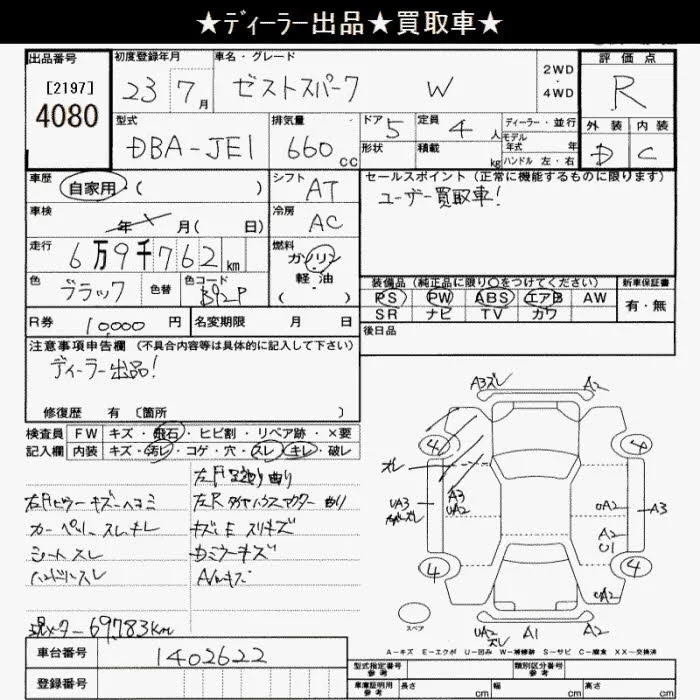 ★ディーラー出品★買取車★
出品番号
[2197]
4080
初度登録年月
23 7月
車名・グレード
ゼストスパーク W
2WD
・
4WD
評価点
R
外装 内装
D C
型式
DBA-JE1
排気量
660cc
ドア 5
定員 4人
形状
積載 kg
ディーラー・並行
モデル
年式 年
ハンドル 左・右
車歴
自家用・( )
シフト AT
セールスポイント(正常に機能するものに限ります)
ユーザー買取車!
車検
年 月( 日)
冷房 AC
走行
6万9千762km
燃料
ガソリン
軽油
( )
色
ブラック
色替
色コード
B92P
装備品(純正品に限り○をつけてください)
PS PW ABS エアB AW
SR ナビ TV カワ
新車保証書
有・無
R券 10,000円
名変期限 月 日
後日品
注意事項申告欄(不具合内容等は具体的に記入して下さい)
ディーラー出品!
修復歴 有〔箇所 〕
検査員
記入欄
FW キズ・飛石・ヒビ割・リペア跡・×要
内装 キズ・汚レ・コゲ・穴・スレ・キレ・破レ
カーペットスレ、キレ
シートスレ
ハンドルスレ
現メーター69,783Km
左R タイヤハウスインナー曲り
Dミラーキズ
A/Wキズ
A3ズレ
A2
4
4
ズレ
A3
UA2
UA3
UA2
A3
A2
U1
4
4
UA2
UA2
ズレ
A1
A2
スペア
A-キズ E-エクボ U-凹み W-補修跡 S-サビ C-腐食 XX-交換済
車台番号
1402622
登録番号
型式指定番号
参考
類別区分番号
参考
車庫証明用
参考
長さ cm
幅 cm
高さ cm